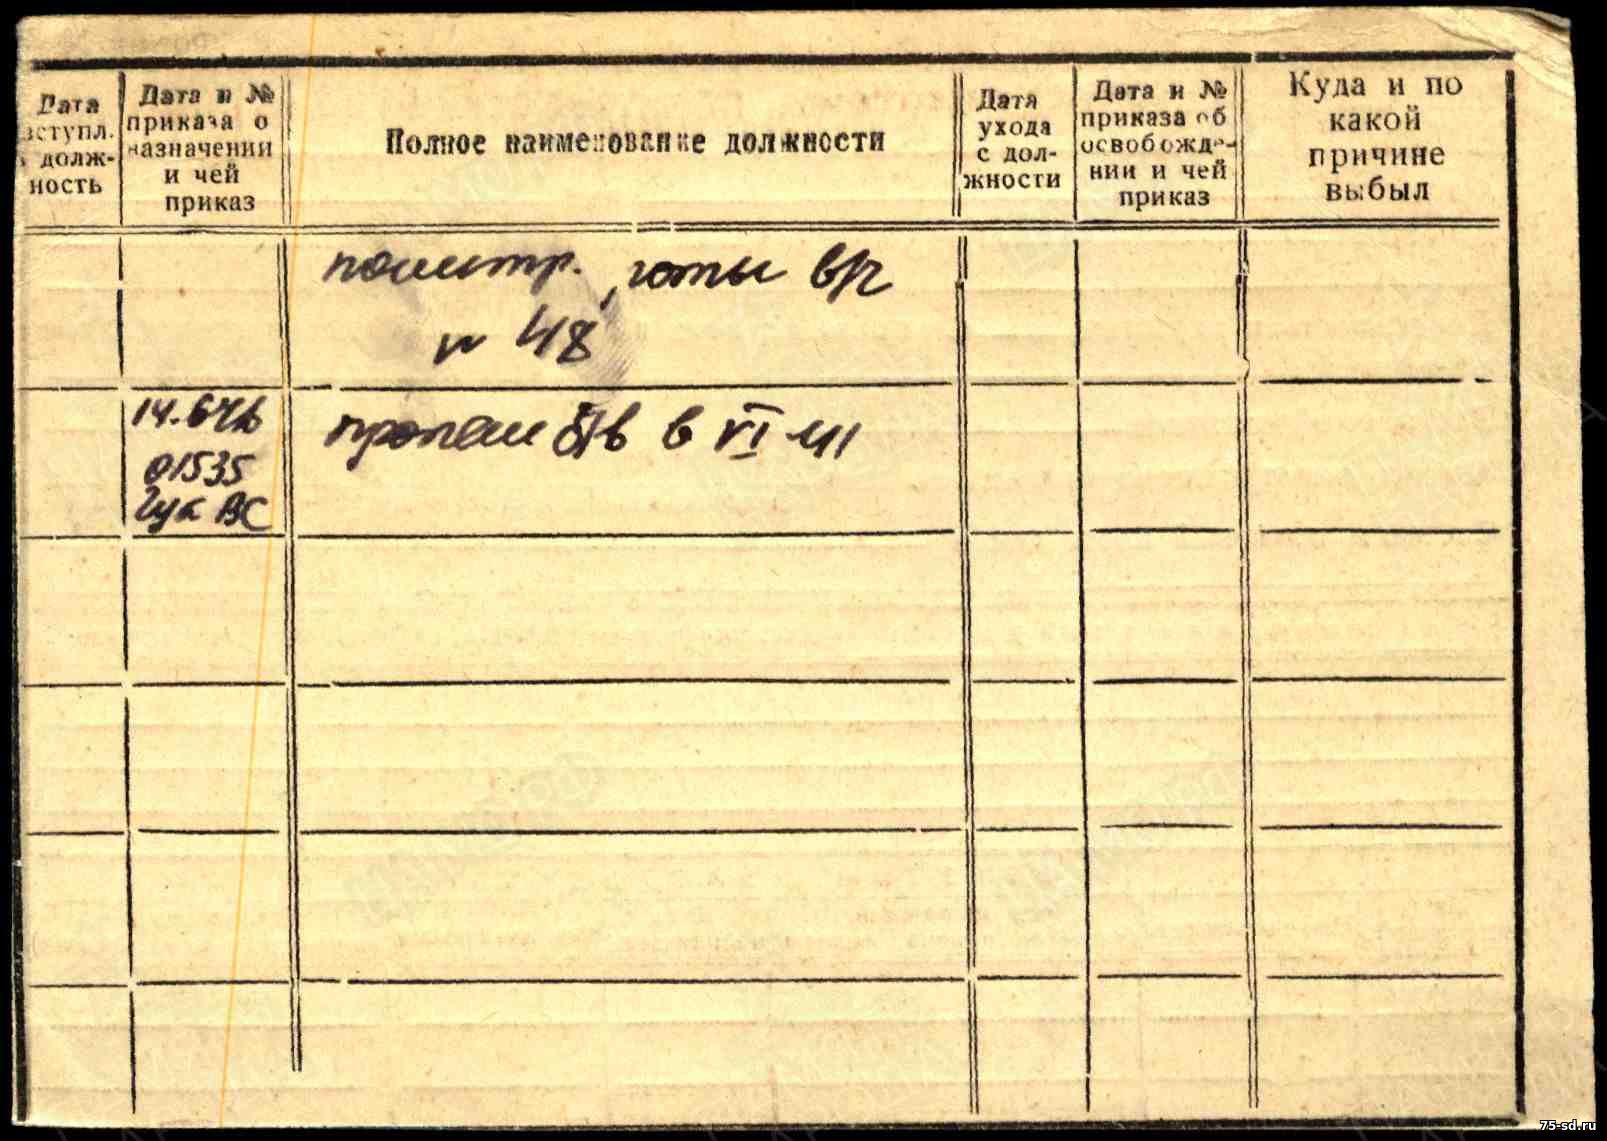 Дата вступл. в долж-ность
Дата и № приказа о назначении и чей приказ
Полное наименование должности
Дата ухода с дол-жности
Дата и № приказа об освобожде-нии и чей приказ
Куда и по какой причине выбыл
политр. роты в/ч
№ 48
14.6.46
01535
Гук ВС
пропал б/в в VI-41
75-sd.ru